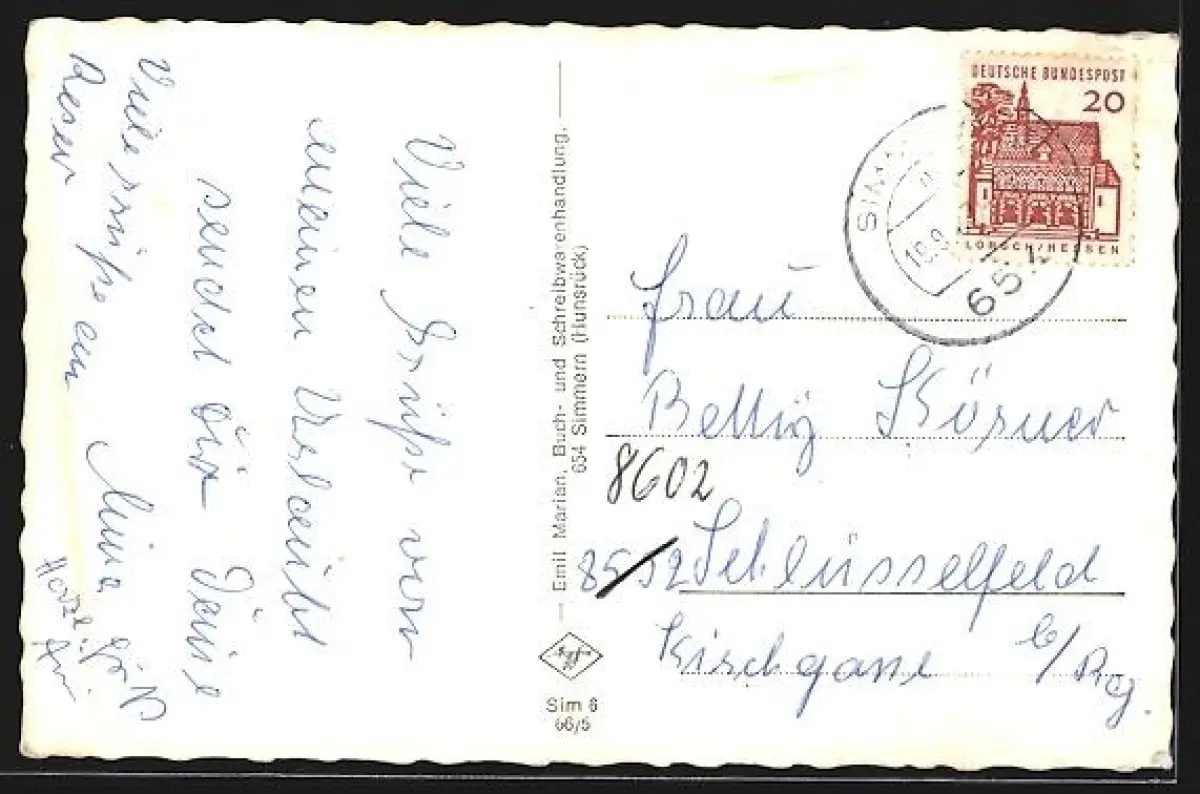 Viele Grüße von
meinen Urlaub
sendet Dir Deine
Mina
Viele Grüße an
Resen
Emil Marian, Buch- und Schreibwarenhandlung,
654 Simmern (Hunsrück)
Agfa
Sim 6
66/5
DEUTSCHE BUNDESPOST
20
LORSCH/HESSEN
SIMM
19.9
654
Frau
Betty Körner
8602
8552 Schlüsselfeld
Kirchgasse b/Bg.